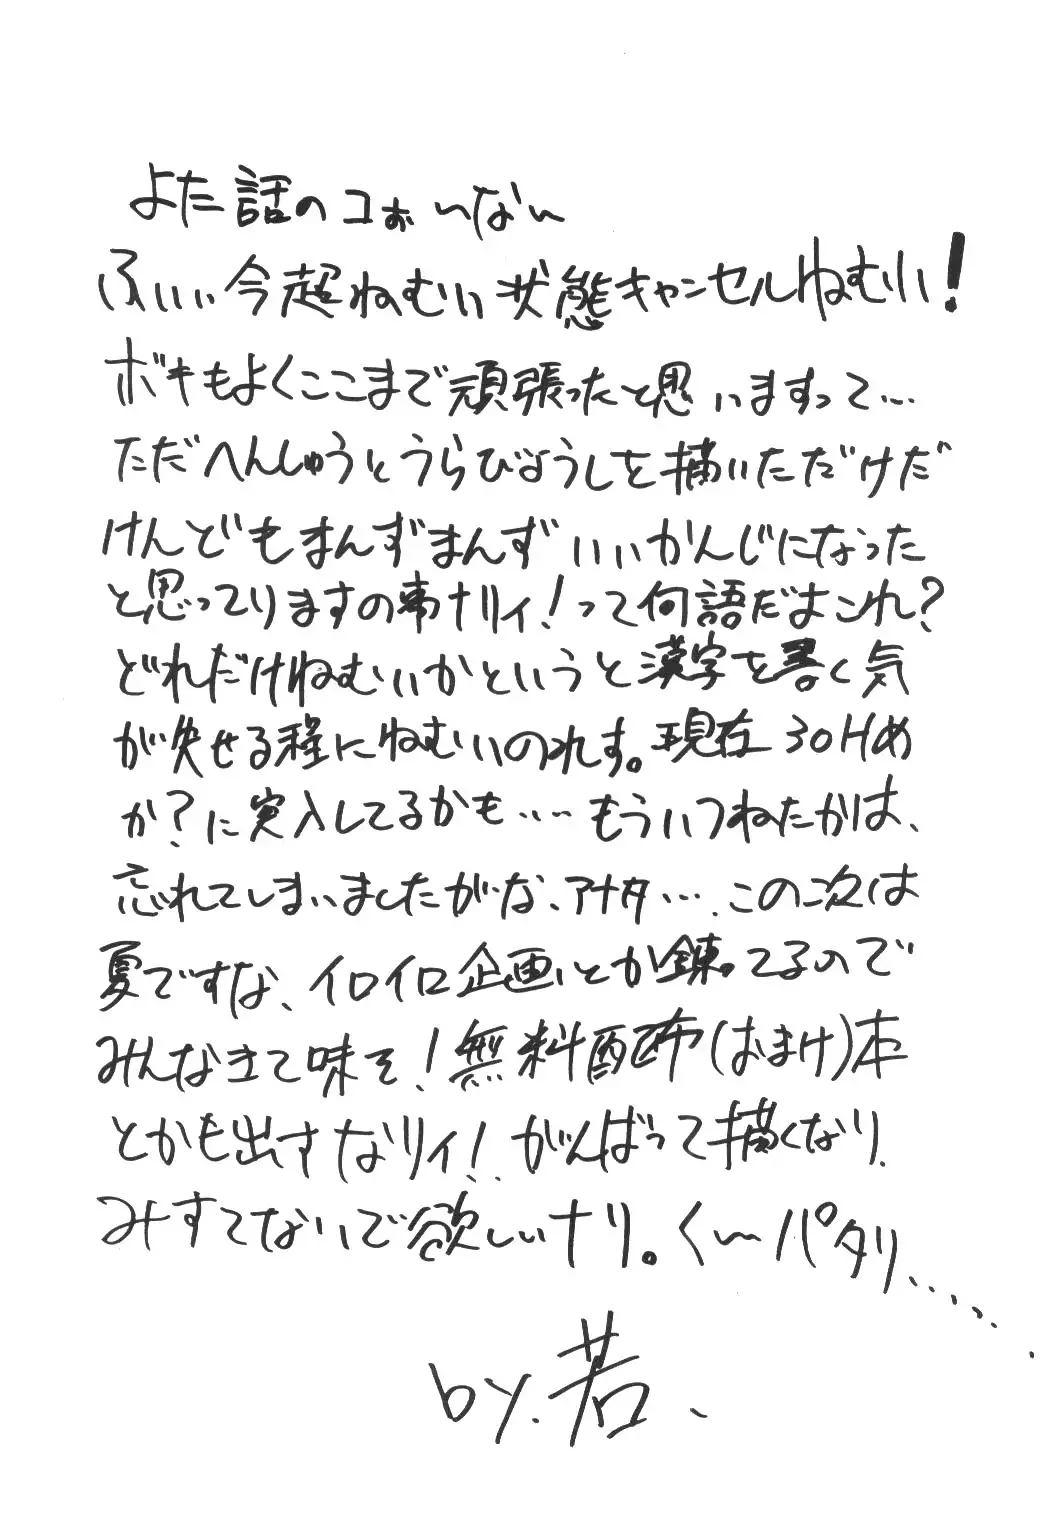 よた話のコぉ〜ない
ふぃぃ今超ねむい状態キャンセルねむい!
ボキもよくここまで頑張ったと思いますって…
ただへんしゅうとうらびょうしを描いただけだ
けんどもまんずまんずいいかんじになった
と思ってりますの事ナリィ!って何語だよこれ?
どれだけねむいかというと漢字を書く気
が失せる程にねむいのれす。現在30Hめ
か?に突入してるかも…もういつねたかは、
忘れてしまいましたがな、アナタ…。この次は
夏ですな、イロイロ企画とか錬ってるので
みんなきて味そ!無料配布(おまけ)本
とかも出すなりィ!がんばって描くなり
みすてないで欲しいナリ。く〜パタリ……
by.若、